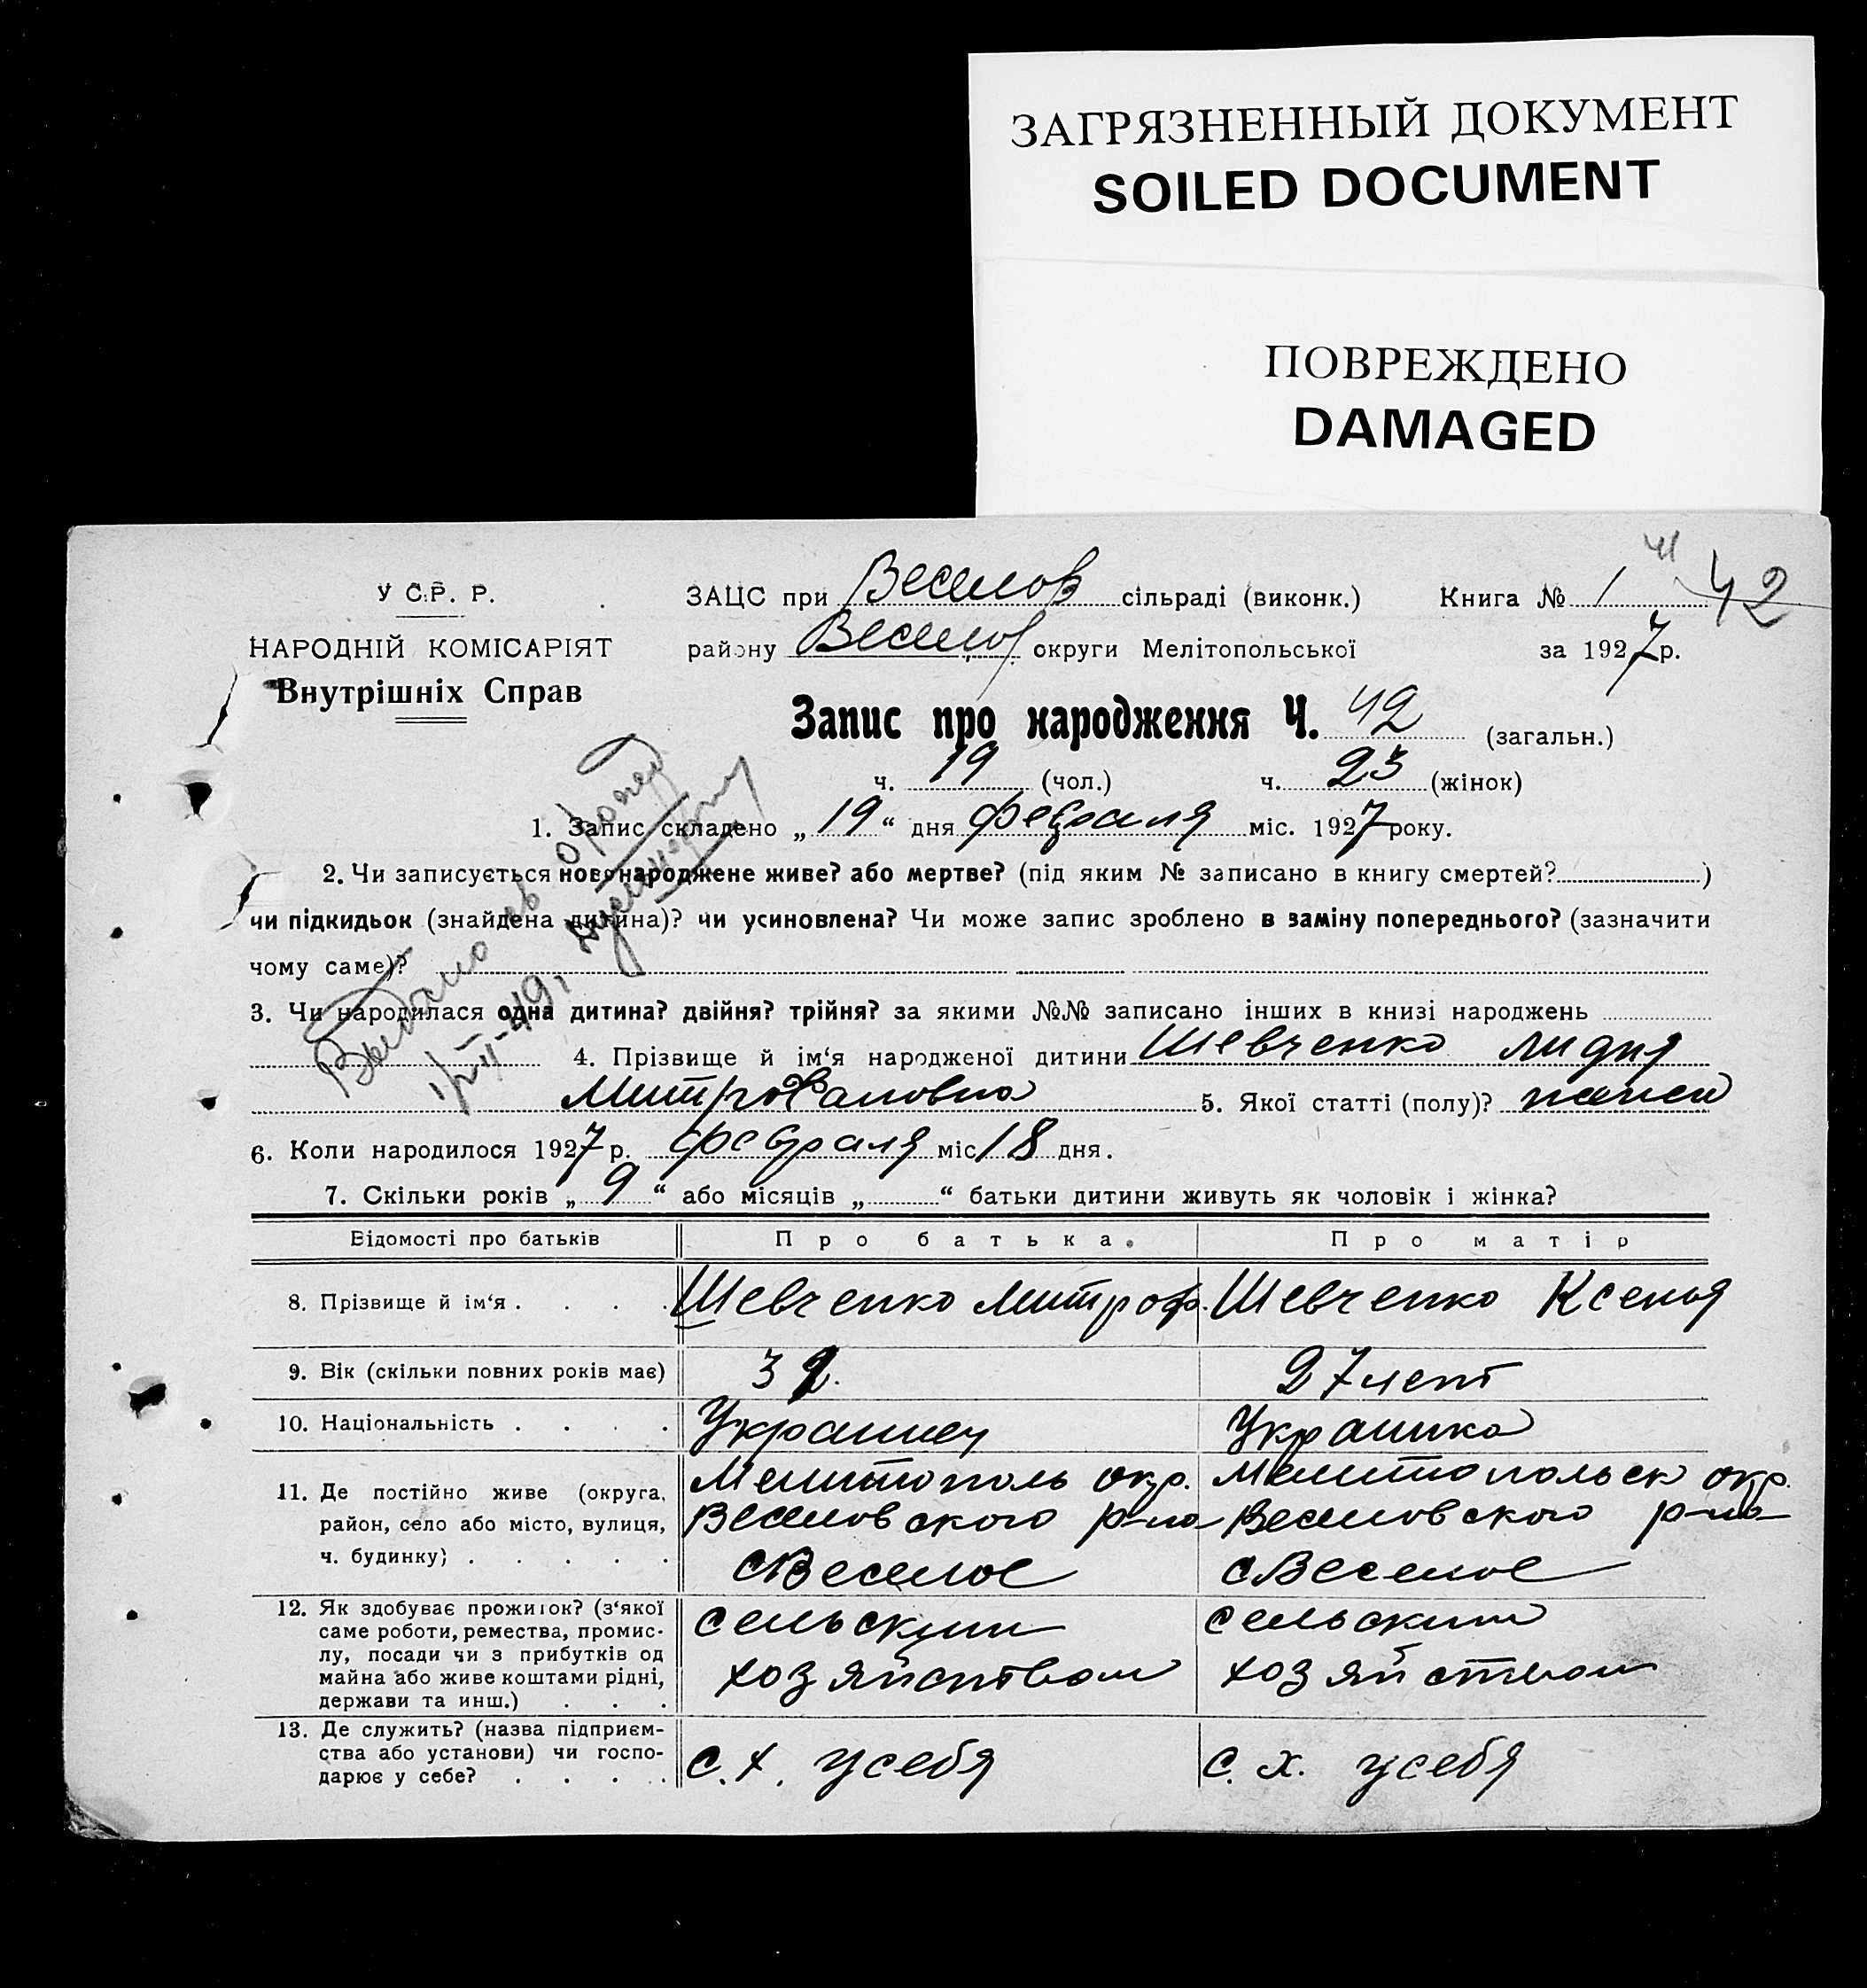 ЗАГРЯЗНЕННЫЙ ДОКУМЕНТ
SOILED DOCUMENT
ПОВРЕЖДЕНО
DAMAGED
41 42
У С.Р. Р.
НАРОДНІЙ КОМІСАРІЯТ
Внутрішніх Справ
ЗАЦС при Веселов сільраді (виконк.) Книга № 1
району Веселов округи Мелітопольської за 1927 р.
Запис про народження Ч. 42 (загальн.)
ч. 19 (чол.) ч. 23 (жінок)
1. Запис складено „ 19 “ дня февраля міс. 1927 року.
2. Чи записується новонароджене живе? або мертве? (під яким № записано в книгу смертей? )
чи підкидьок (знайдена дитина)? чи усиновлена? Чи може запис зроблено в заміну попереднього? (зазначити
чому саме)?
Выдано
1/VII-49,
3. Чи народилася одна дитина? двійня? трійня? за якими №№ записано інших в книзі народжень
4. Прізвище й ім‘я народженої дитини Шевченко Лидия
Митрофановна 5. Якої статті (полу)?
6. Коли народилося 1927 р. февраля міс 18 дня.
7. Скільки років „ 9 “ або місяців „ “ батьки дитини живуть як чоловік і жінка?
Відомості про батьків Про батька. Про матір
8. Прізвище й ім‘я . . . . Шевченко Митроф. Шевченко Ксенья
9. Вік (скільки повних років має) 32. 27 лет
10. Національність . . . . Украинец Украинка
11. Де постійно живе (округа, Мелитополь окр. Мелитопольск окр.
район, село або місто, вулиця, Веселовского р-на Веселовского р-на
ч. будинку) . . . . . с Веселое с Веселое
12. Як здобуває прожиток? (з‘якої сельским сельским
саме роботи, ремества, промис-
лу, посади чи з прибутків од
майна або живе коштами рідні, хозяйством хозяйством
держави та инш.) . . .
13. Де служить? (назва підприєм-
ства або установи) чи госпо- с. х. у себя с. х. у себя
дарює у себе? . . . .